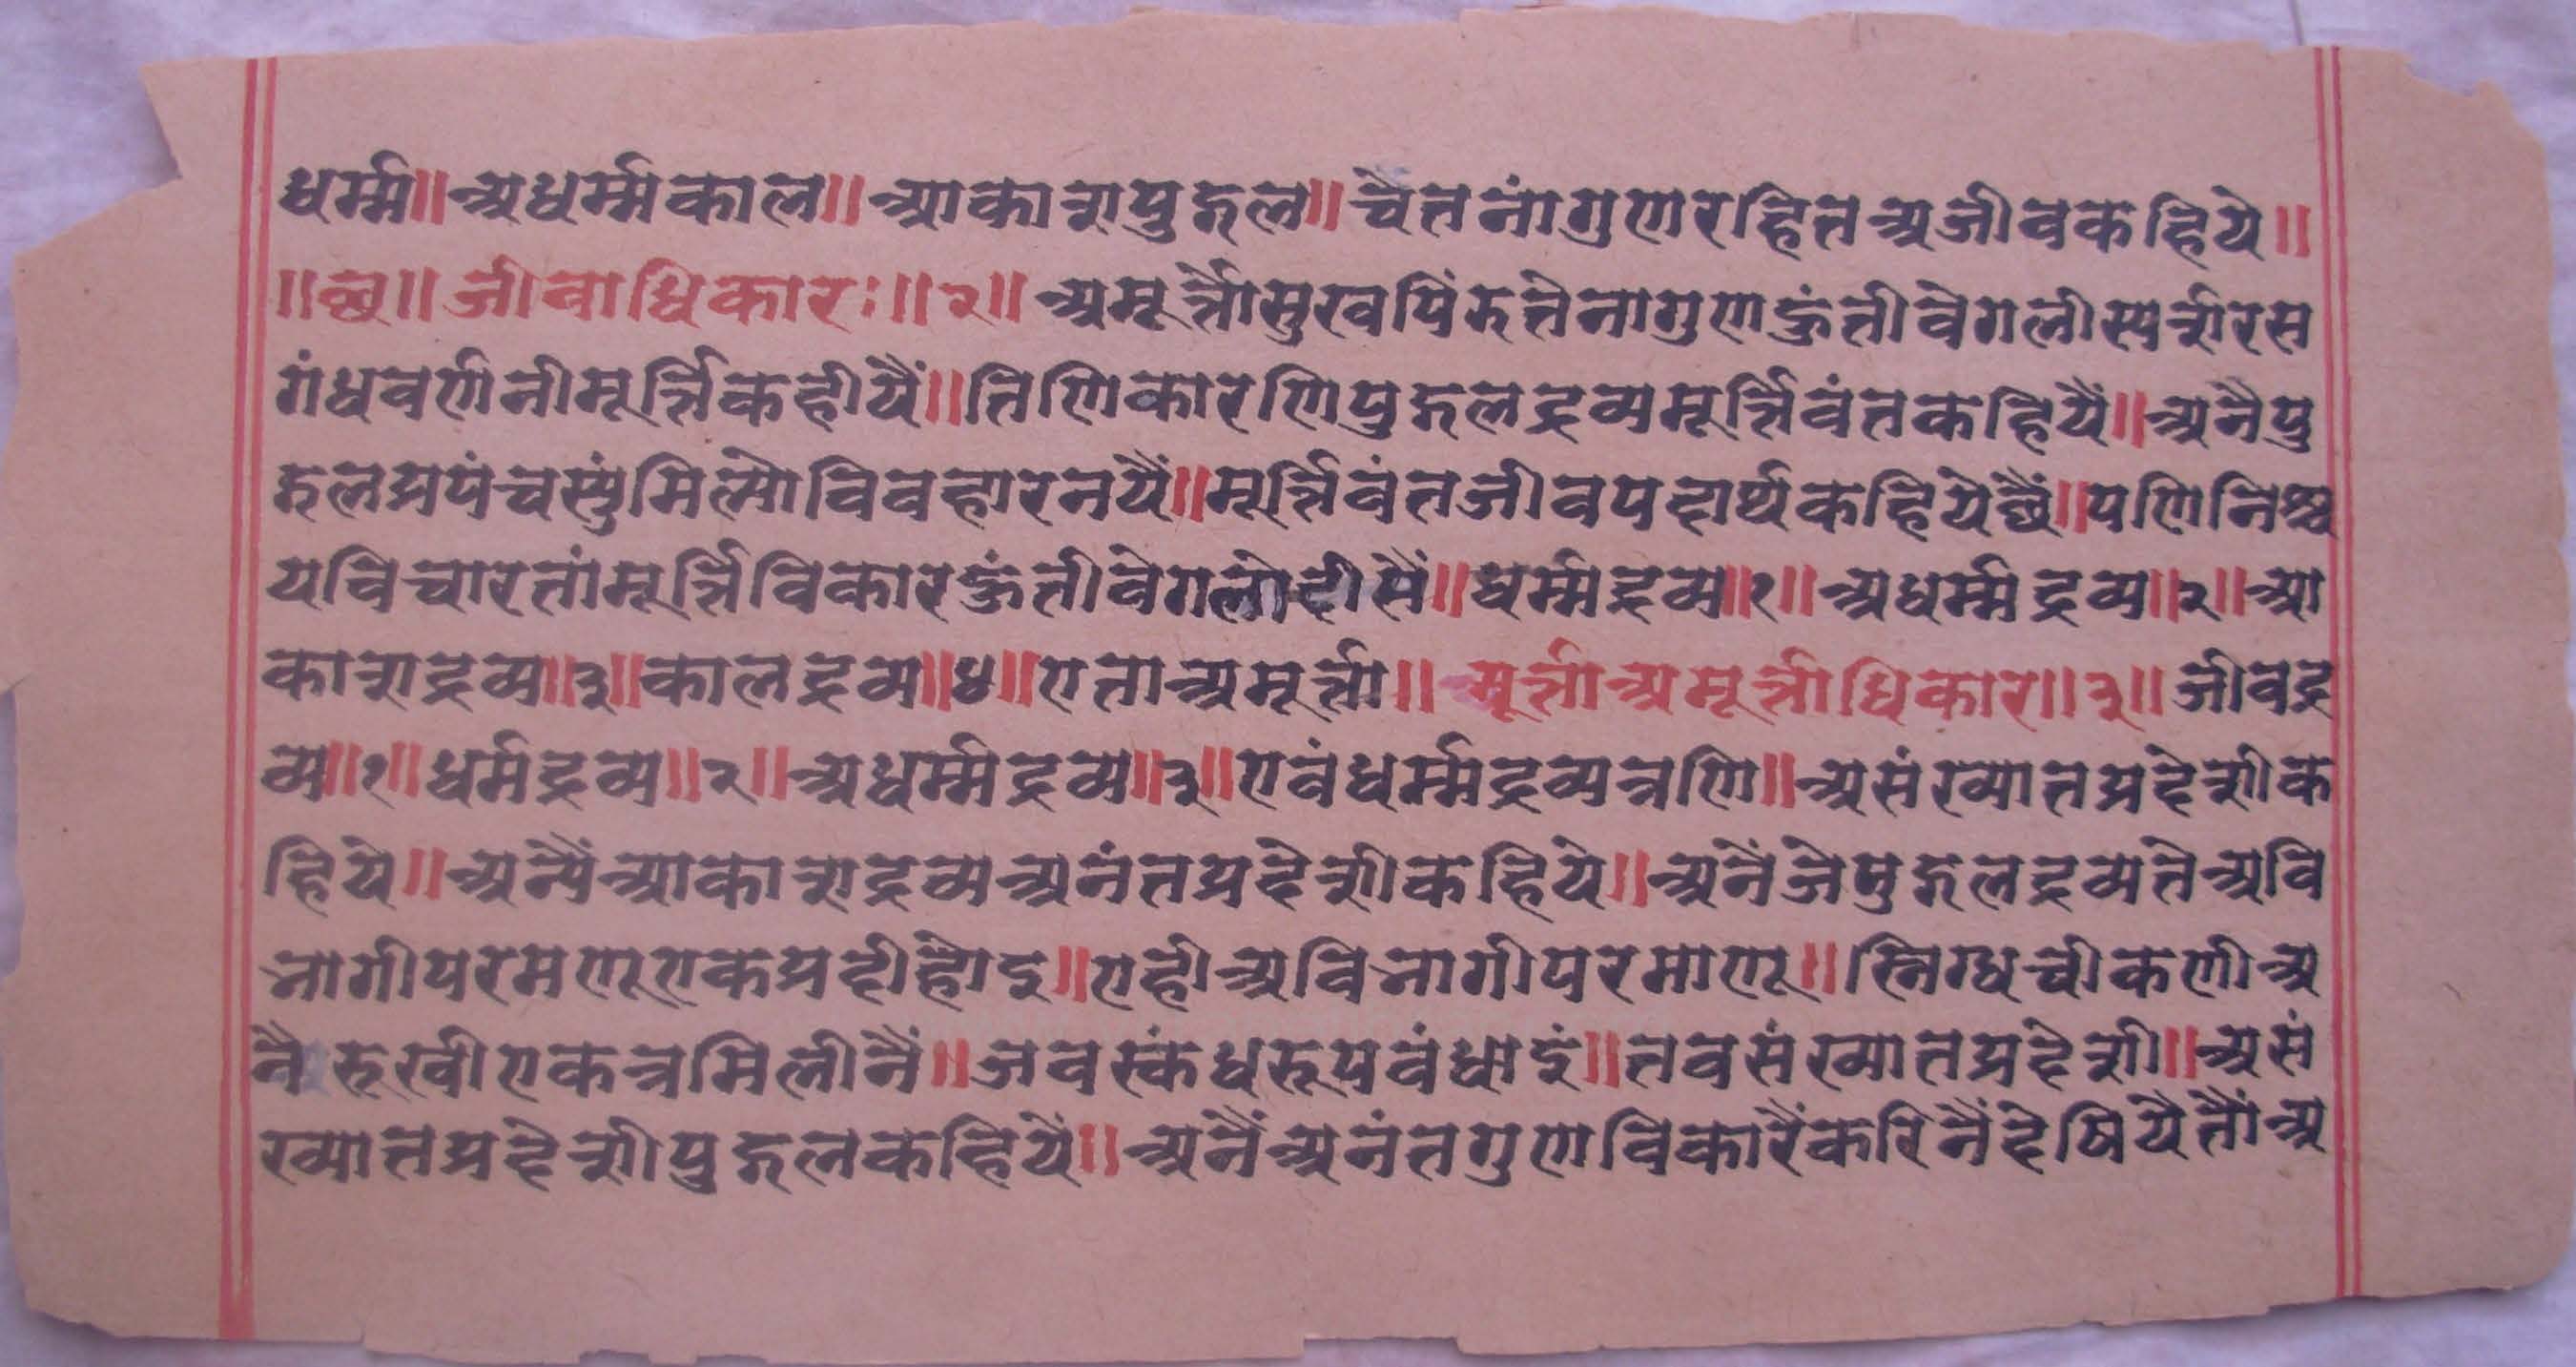 धर्म्म॥ अधर्म्मकाल॥ आकाशपुद्गल॥ चेतनांगुणरहितअजीवकहिये॥
॥छ॥ जीवाधिकारः॥२॥ अमूर्त्तौसुखपिंडतेनागुणहुंतीवेगलीस्पर्शरस
गंधवर्णनीमूर्त्तिकहीयैं॥तिणिकारणिपुद्गलद्रव्यमूर्त्तिवंतकहियैं॥अनैपु
द्गलप्रपंचस्युंमिल्यौविवहारनयैं॥मूर्त्तिवंतजीवपदार्थकहियेछैं॥पणिनिश्च
यविचारतांमूर्त्तिविकारहुंतीवेगलोदीसैं॥धर्म्मद्रव्य॥१॥अधर्म्मद्रव्य॥२॥आ
काशद्रव्य॥३॥कालद्रव्य॥४॥एताअमूर्त्ती॥ मूर्त्तीअमूर्त्तीधिकार॥३॥ जीवद्र
व्य॥१॥धर्मद्रव्य॥२॥अधर्म्मद्रव्य॥३॥एवंधर्म्मद्रव्यत्रणि॥असंख्यातप्रदेशीक
हिये॥अन्यैंआकाशद्रव्यअनंतप्रदेशीकहिये॥अनैंजेपुद्गलद्रव्यतेअवि
भागीपरमणूएकप्रदीहौइ॥एहीअविभागीपरमाणू॥स्निग्धचीकणीअ
नैरूखीएकत्रमिलीनैं॥जवस्कंधरूपबंधाइं॥तवसंख्यातप्रदेशी॥असं
ख्यातप्रदेशीपुद्गलकहियैं॥अनैंअनंतगुणविकारैंकरिनैंदेषियैतौंअ